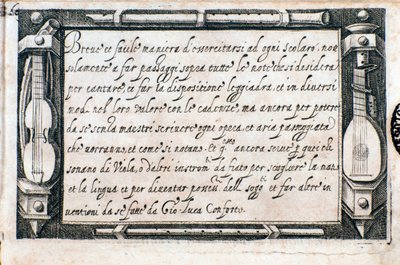 Breue et facile maniera d'essercitarsi ad ogni scolaro, non
solamente a far passaggi sopra tutte le note che si desidera
per cantare, et far la dispositione leggiadra, et in diuersi
modi nel loro valore con le cadenze, ma ancora per potere
da se senza maestro scriuere ogni opera, et aria passeggiata
che vorranno, et come si notano. Et q.sto ancora serue p quei che
sonano di Viola, o d'altri instrom.ti da fiato per sciogliere la mano
et la lingua et per diuentar possess.ri delli sogg.ti et far altre in
uentioni da se fatte da Gio. Luca Conforto.